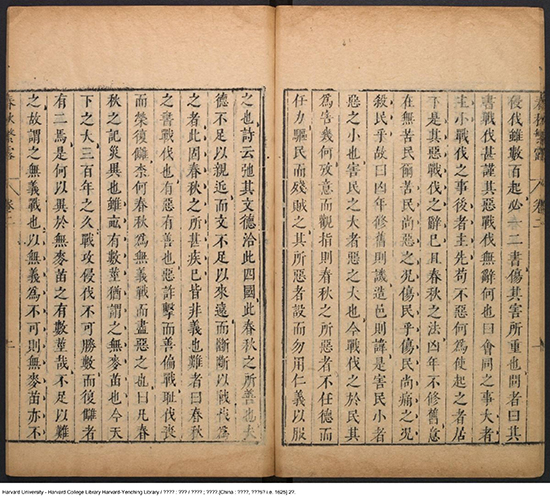 春秋繁露 卷二
侵伐雖數百起必一二書傷其害所重也問者曰其
書戰伐甚謹其惡戰伐無辭何也曰會同之事大者
主小戰伐之事後者主先苟不惡何為使起之者居
下是其惡戰伐之辭巳且春秋之法凶年不修舊意
在無苦民爾苦民尚惡之况傷民乎傷民尚痛之况
殺民乎故曰凶年修舊則譏造邑則諱是害民小者
惡之小也害民之大者惡之大也今戰伐之於民其
為害幾何攷意而觀指則春秋之所惡者不任德而
任力驅民而殘賊之其所惡者設而勿用仁義以服
之也詩云弛其文德洽此四國此春秋之所善也夫
德不足以親近而文不足以來遠而斷斷以戰伐為
之者此固春秋之所甚疾巳皆非義也難者曰春秋
之書戰伐也有惡有善也惡詐擊而善偏戰耻伐喪
而榮復讎柰何春秋為無義戰而盡惡之也曰凡春
秋之記災異也雖畝有數莖猶謂之無麥苗也今天
下之大三百年之久戰攻侵伐不可勝數而復讎者
有二焉是何以異於無麥苗之有數莖哉不足以難
之故謂之無義戰也以無義為不可則無麥苗亦不
春秋繁露 卷二
Harvard University - Harvard College Library Harvard-Yenching Library / ???? : ??? / ???? ; ???? [China : ????, ???5? i.e. 1625] 27.